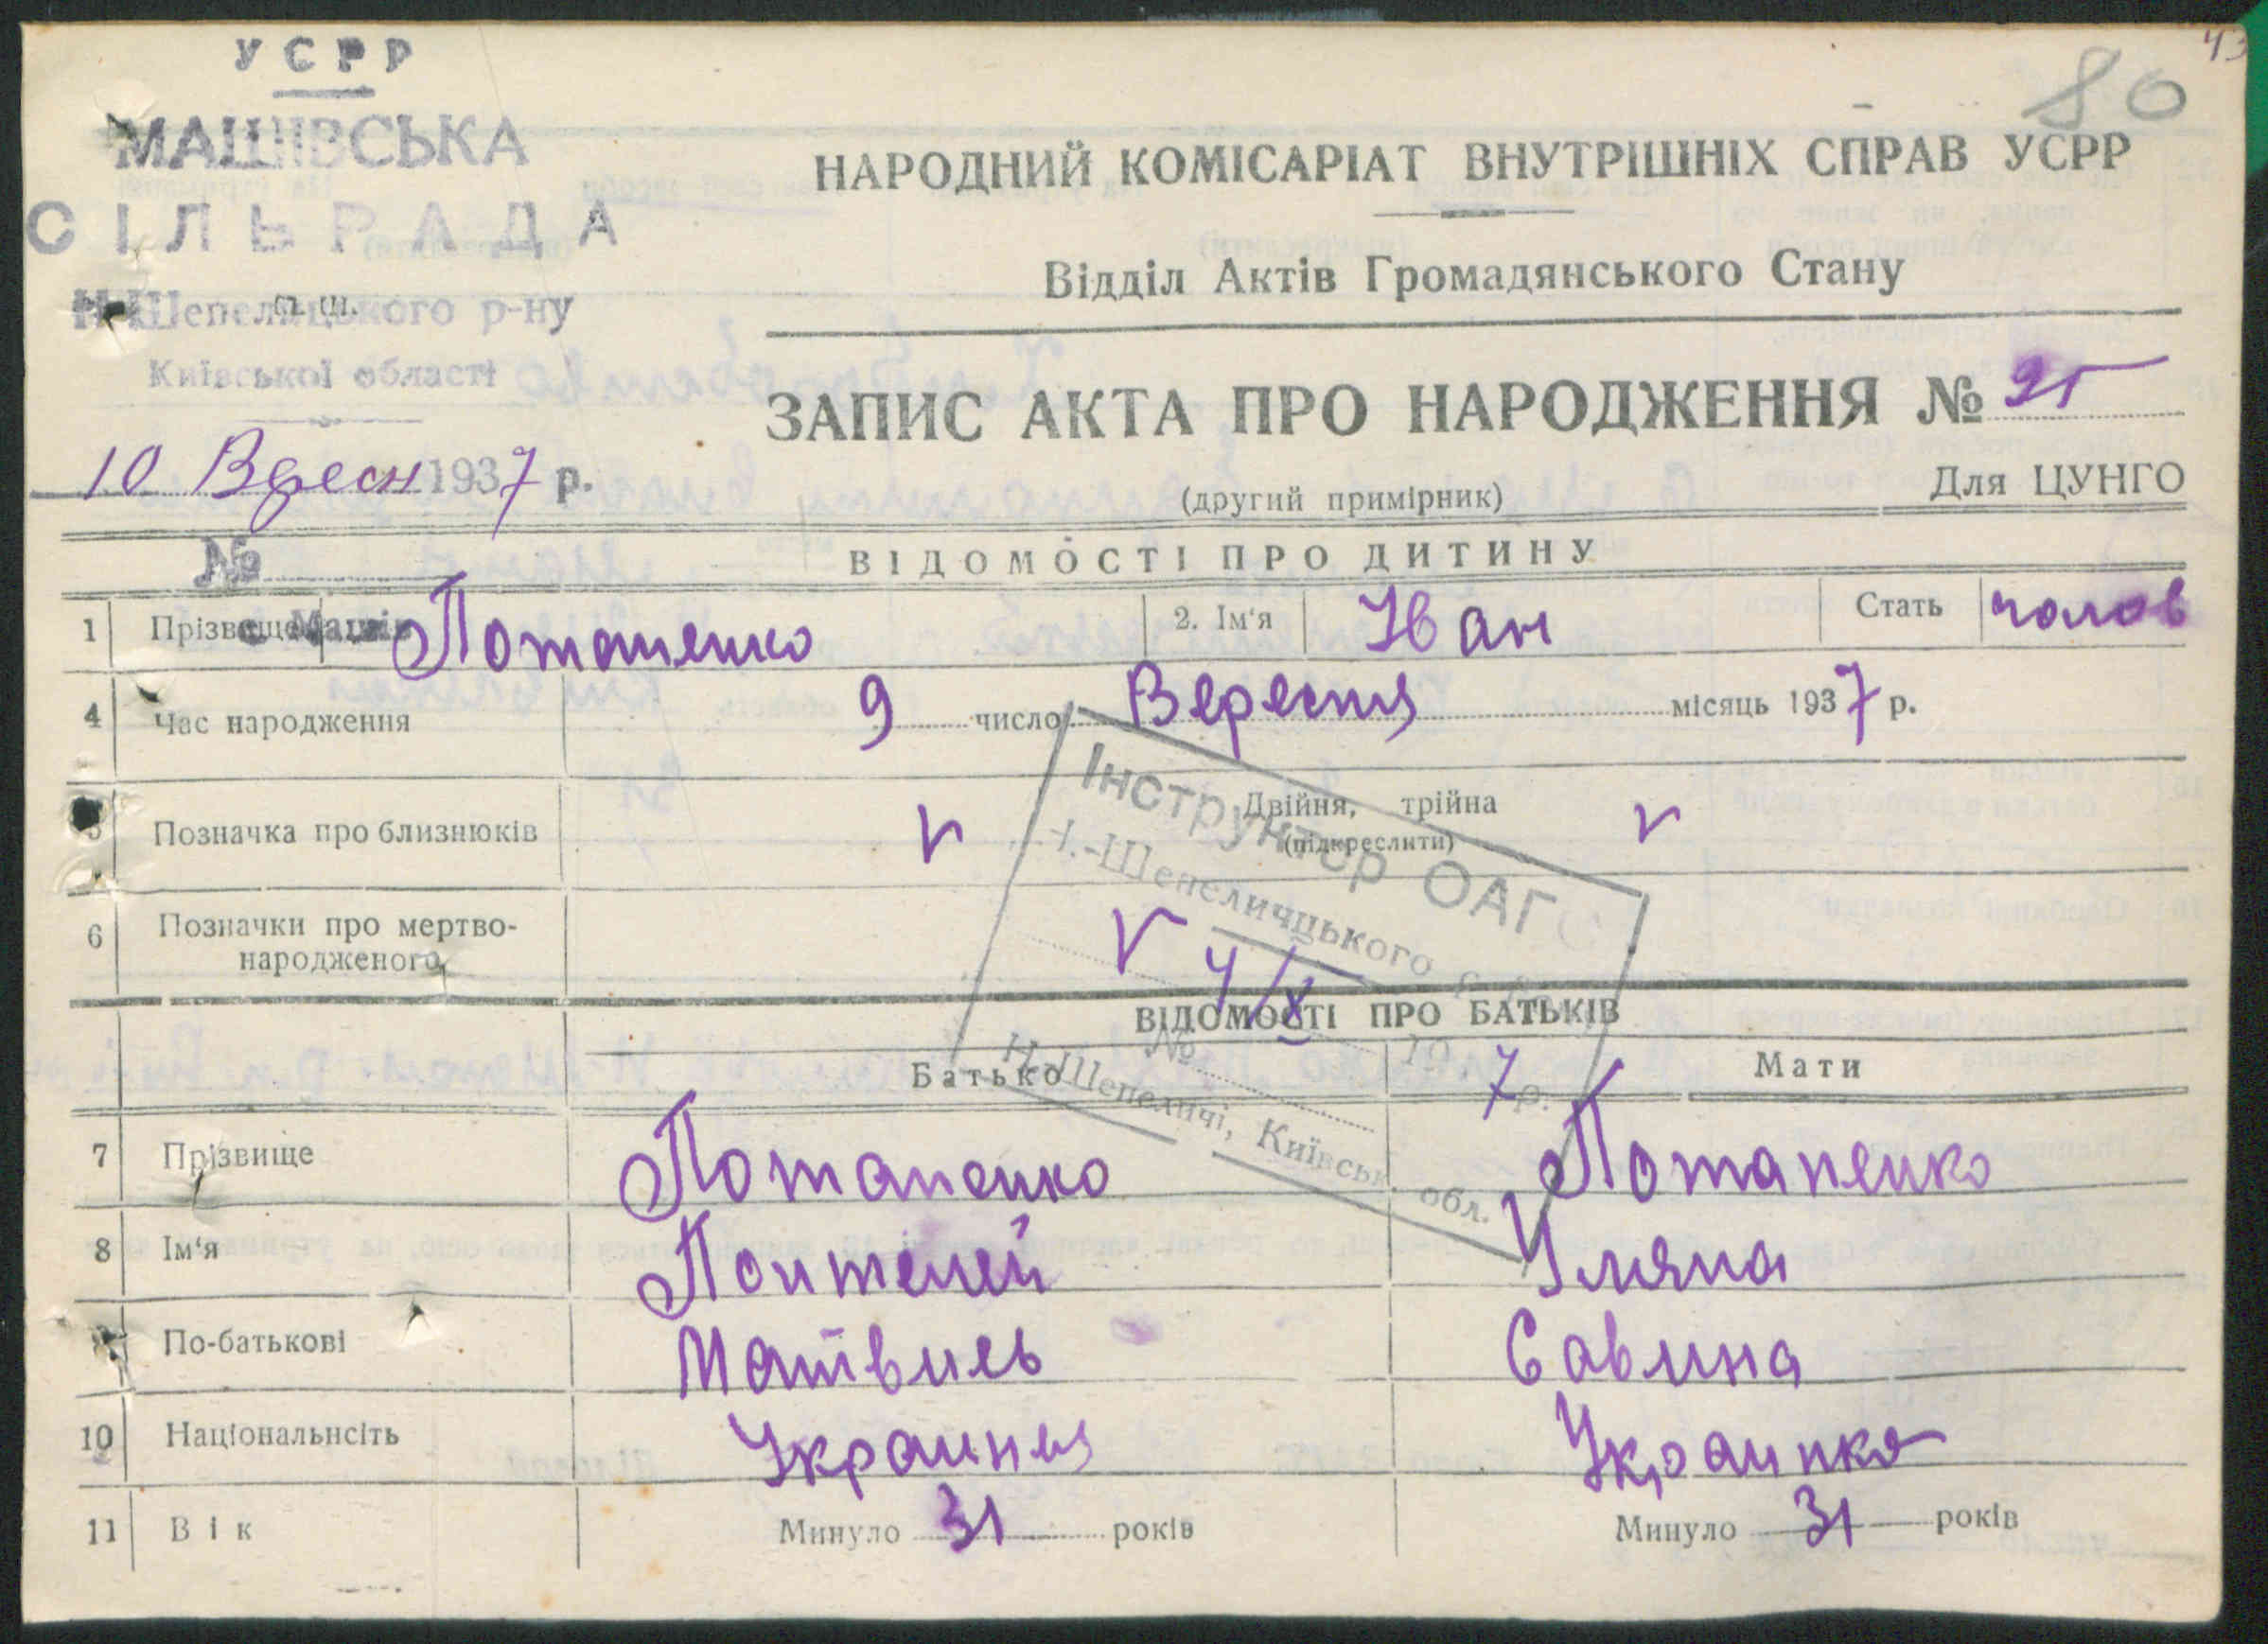 УСРР
МАШІВСЬКА
СІЛЬРАДА
Н-Шепелицького р-ну
Київської області
10 Вересн 1937 р.
№
80
НАРОДНИЙ КОМІСАРІАТ ВНУТРІШНІХ СПРАВ УСРР
Відділ Актів Громадянського Стану
ЗАПИС АКТА ПРО НАРОДЖЕННЯ № 95
(другий примірник)
Для ЦУНГО
ВІДОМОСТІ ПРО ДИТИНУ
1 Прізвище Потапенко 2. Ім‘я Іван Стать чолов
4 Час народження 9 число Вересня місяць 1937 р.
5 Позначка про близнюків Двійня, трійна
(підкреслити)
6 Позначки про мертво-
народженого
Інструктор ОАГ
Н.-Шепеличцького
4/X
№ 19 7 р.
Н-Шепеличі, Київськ. обл.
ВІДОМОСТІ ПРО БАТЬКІВ
Батько Мати
7 Прізвище Потапенко Потапенко
8 Ім‘я Пантелей Уляна
По-батькові Матвиев Савлина
10 Національнсіть Украинец Украинка
11 Вік Минуло 31 років Минуло 31 років